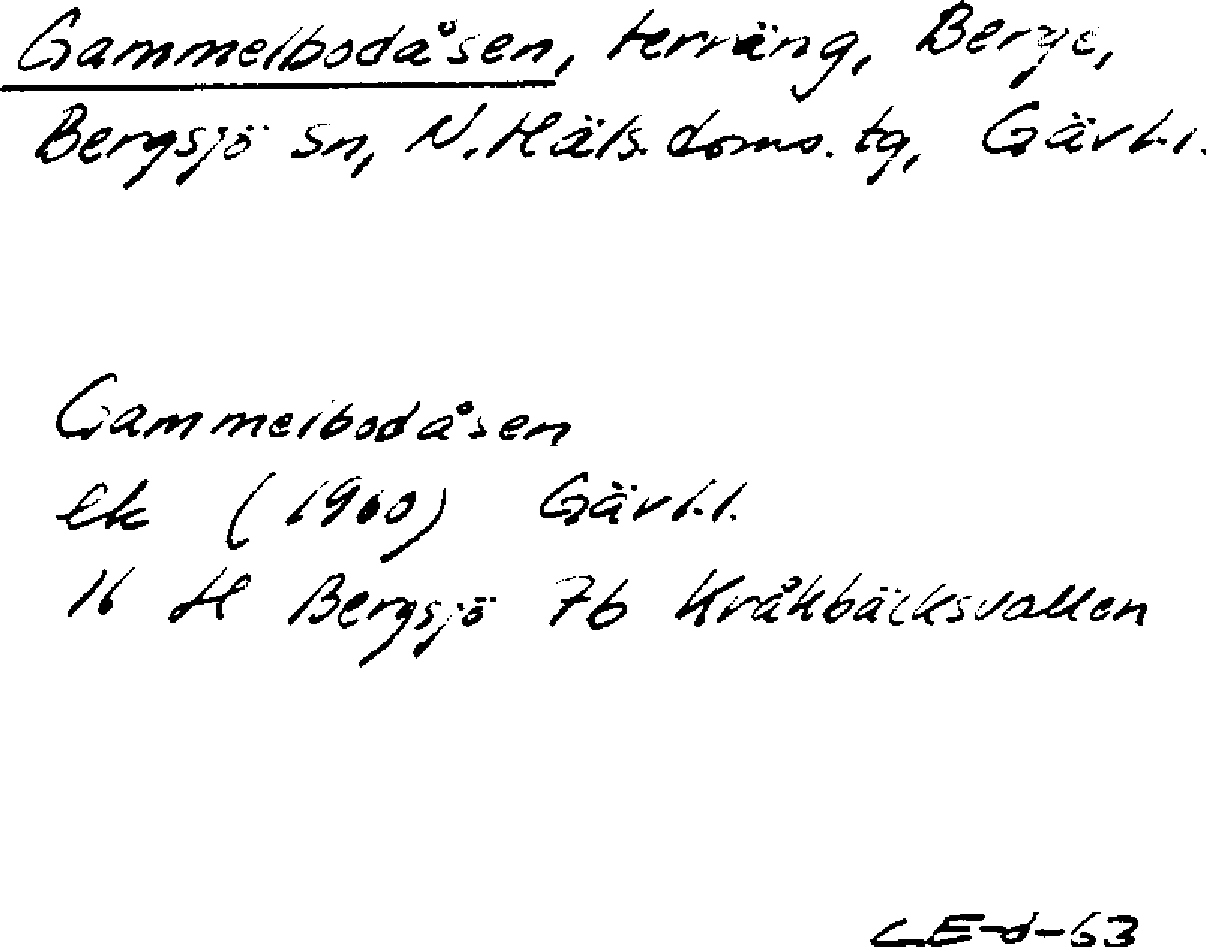 Gammelbodåsen, terräng, Berge,
Bergsjö sn, N. Häls. doms. tg, Gävl. l.
Gammelbodåsen
Ek (1960) Gävl. l.
16 H Bergsjö 7b Kråkbäcksvallen
GE-d-63